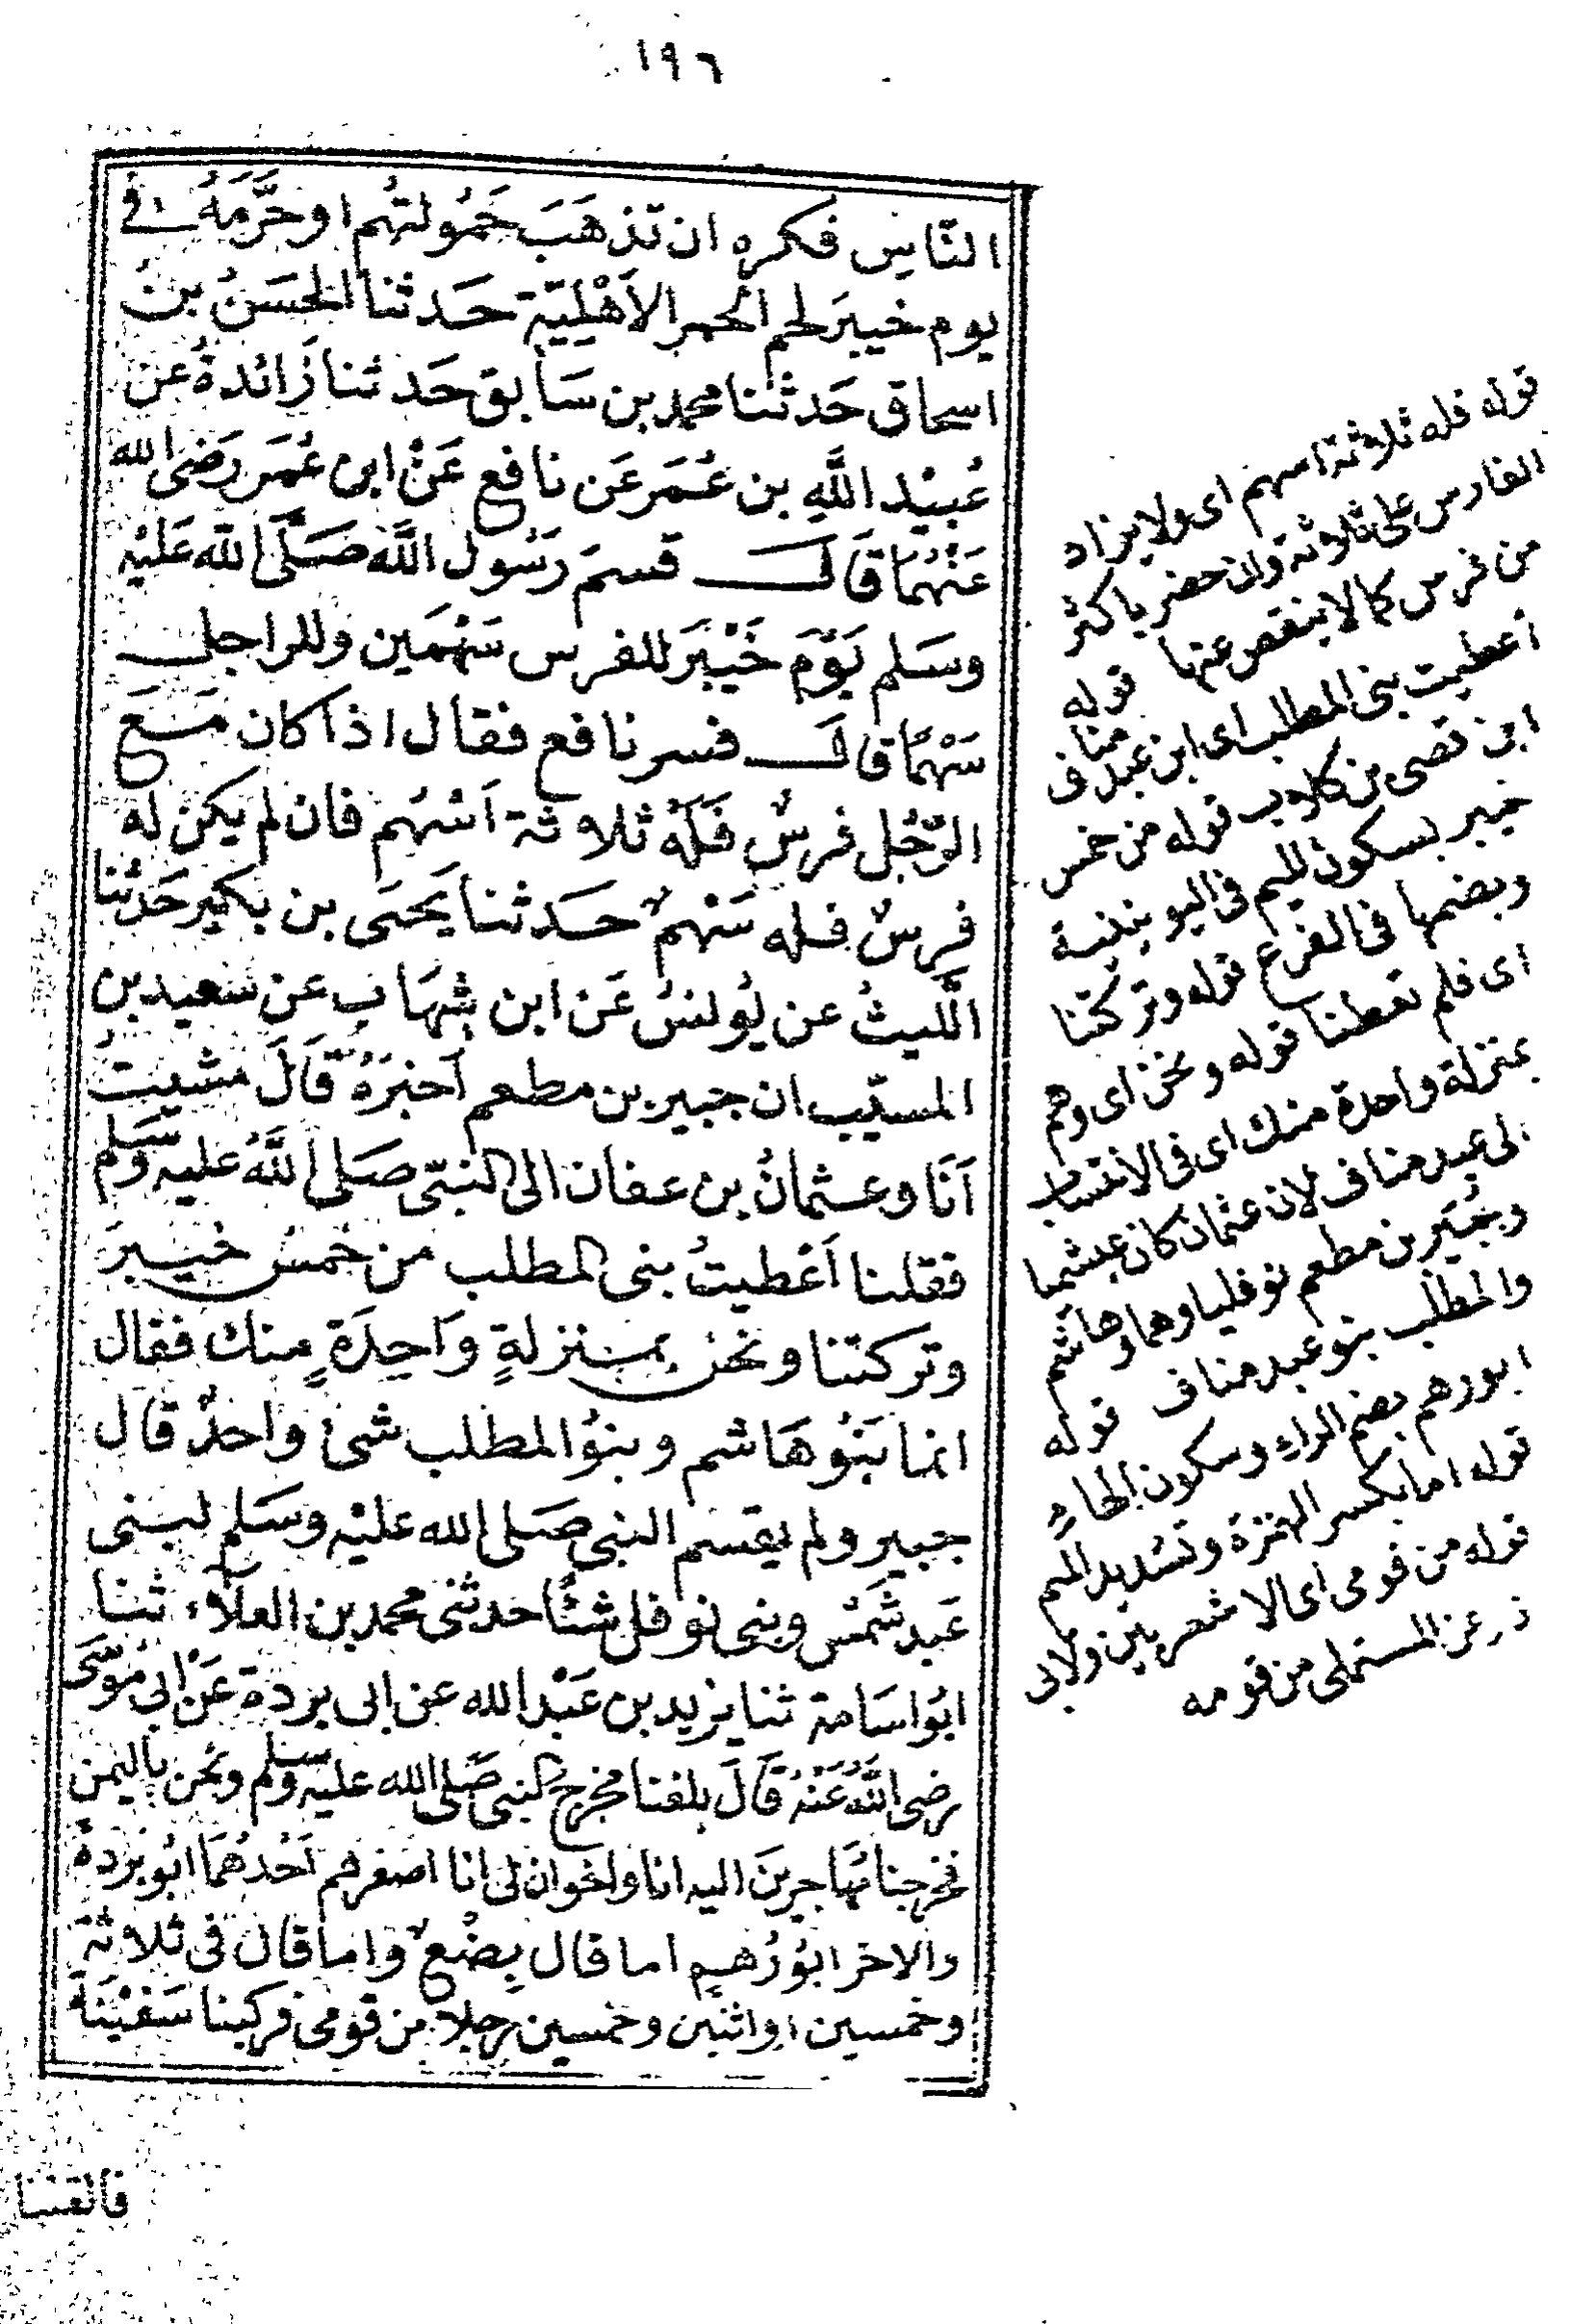 ١٩٦
النّاس فكره ان تذهَبَ حَمُولتُهم او حَرَّمَهُ في
يوم خيبرَ لحم الحمر الاَهْلِيّة حَدثنا الحَسَنُ بنُ
اسحاق حَدثنا محمد بن سَابق حَدثنا زَائدةُ عن
عُبيْد اللَّهِ بن عُمَر عَن نافع عَنْ ابن عُمَر رَضى الله
عَنْهُمَا قَالَ قسمَ رَسُول اللَّه صَلَّى الله عَليْه
وسَلم يَوْمَ خَيْبَرَ للفرس سَهْمَين وللراجل
سَهْمًا قالَ فسر نافع فقال اذا كان مَعَ
الرّجُل فرسٌ فَلَهُ ثلاثة اَسْهُم فان لم يكن له
فرسٌ فله سَهْمٌ حَدثنا يَحيَى بن بكير حَدثنا
اللَّيثُ عن يُونسُ عَن ابن شِهَاب عن سَعيد بن
المسيّب ان جبير بن مطعم اَخبرَهُ قَالَ مشيتُ
اَنَا وعثمانُ بن عفان الى النبّى صَلى اللَّهُ عليه وسَلم
فقلنا اَعْطيتُ بنى المطلب من خُمسُ خيبرَ
وتركتنا ونحن بمنزلةٍ وَاحِدَةٍ منك فقال
انما بَنُو هَاشم وبنوُ المطلب شئ واحدٌ قال
جبير ولم يقسم النبى صَلى الله عليْه وسَلم لبنى
عَبد شَمْس وبنى نوفل شئًا حدثنى محمد بن العلاَء ثنا
ابُو اسَامة ثنا يزيد بن عَبْد الله عن ابى بردَة عَنْ ابى مُوسَى
رضى اللَّهُ عَنْهُ قَالَ بلغنا مخرج النبى صَلى الله عليه وسلم ونحن باليمن
فخرجنا مُهَاجرينَ اليه انا واخوان لى انا اصغرهم اَحُدهُمَا ابُو بُردةَ
والاخر ابُو رُهمٍ اما قال بِضْعٌ واما قال فى ثلاثة
وخمسين او اثنين وخمسين رجلا من قومى فركبنا سَفيْنَة
فالقتنا
قوله فله ثلاثة اسهم اى ولا يزاد
الفارس على ثلاثة وان حضر باكثر
من فرس كما لا ينقص عنها قوله
أعطيت بنى المطلب اى ابن عبد مناف
ابن قصى بن كلاب قوله من خمس
خيبر بسكون الميم فى اليونينية
وبضمها فى الفرع قوله وتركتنا
اى فلم تعطنا قوله ونحن اى وهم
بمنزلة واحدة منك اى فى الانتساب
الى عبد مناف لان عثمان كان عبشميا
وجُبَير بن مطعم نوفليا وهما وهاشم
والمطلب بنو عبد مناف قوله
ابورهم بضم الراء وسكون الهاء
قوله اما بكسر الهمزة وتشديد الميم
قوله من قومى اى الاشعريين ولابى
ذر عن المستملى من قومه